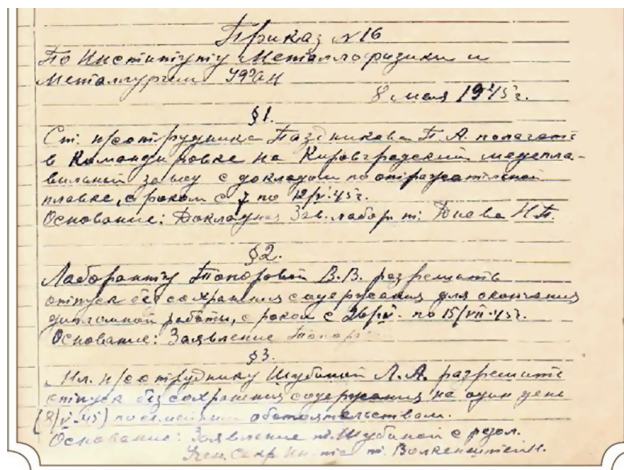 Приказ №16
По Институту Металлофизики и
Металлургии УФАН
8 мая 1945г.
§1.
Ст. н/сотрудника Паздникова П.А. полагать
в командировке на Кировградский медепла-
вильный заводу с докладом по отражательной
плавке, сроком с 7 по 12/V-45г.
Основание: Докладная Зав. лабор т.
§2.
Лаборанту Топоровой В.В. разрешить
отпуск без сохранения содержания для окончания
дипломной работы, сроком с по 15/VII-45г.
Основание: Заявление Топор
§3
Мл. н/сотруднику Шубиной Л.А. разрешить
отпуск без сохранения содержания на один день
(8/V-45) по семейным обстоятельствам.
Основание: Заявление т. Шубиной с резол.
Учен. Секр. Ин-та т. Волкенштейн.